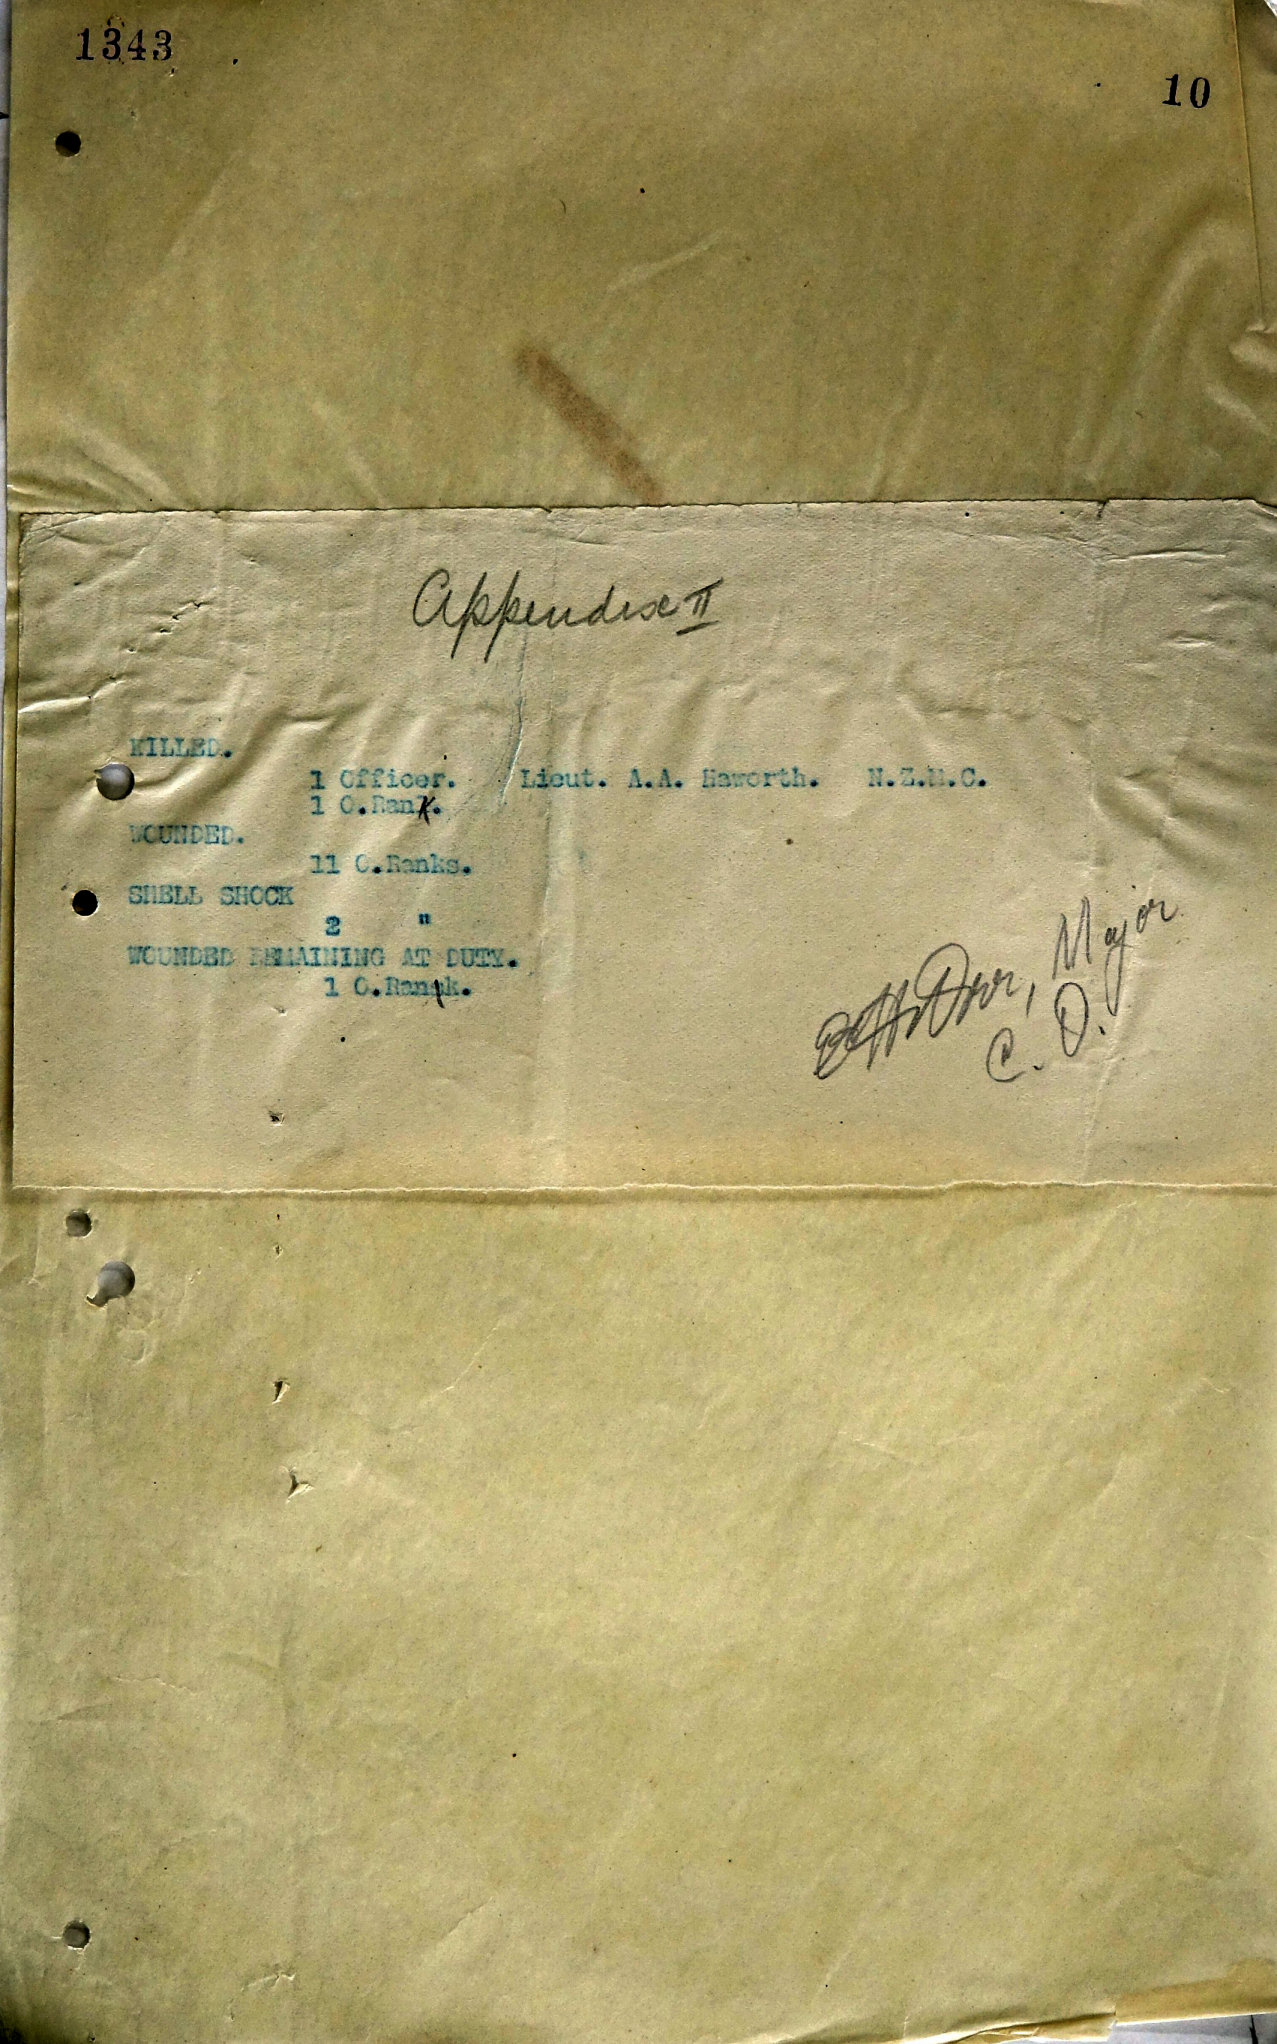 1343
10
Appendix II
KILLED.
1 Officer. Lieut. A.A. Haworth. N.Z.M.C.
1 O.Rank.
WOUNDED.
11 O.Ranks.
SHELL SHOCK
2 "
WOUNDED REMAINING AT DUTY.
1 O.Rank.
Major
C. O.